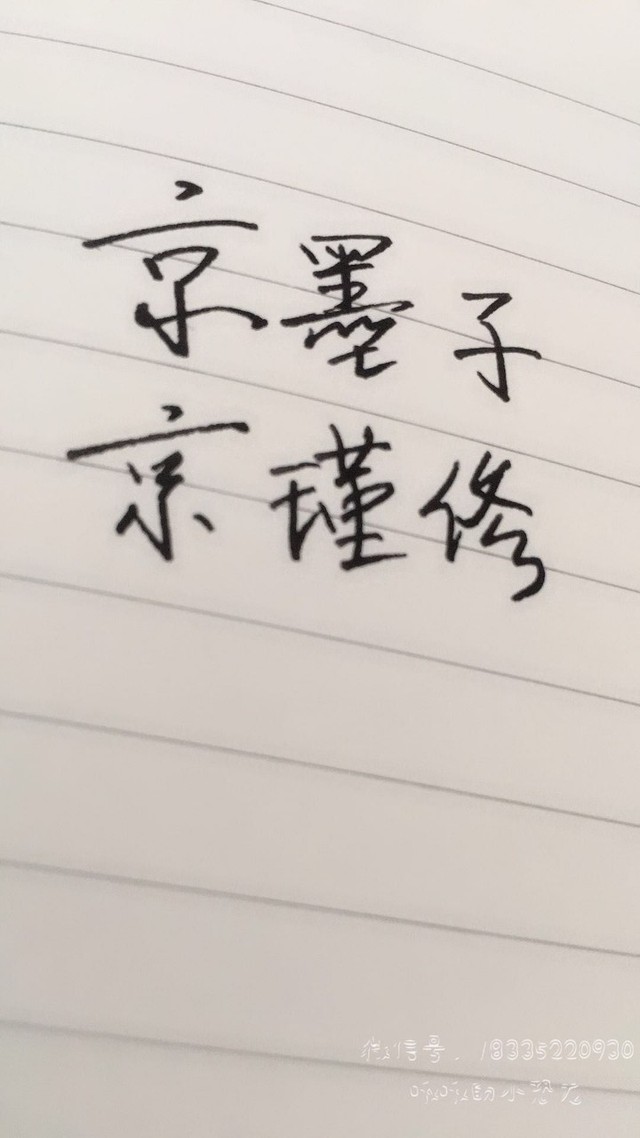 京墨子
京瑾修
微信号：18335220930
叽叽的小恐龙